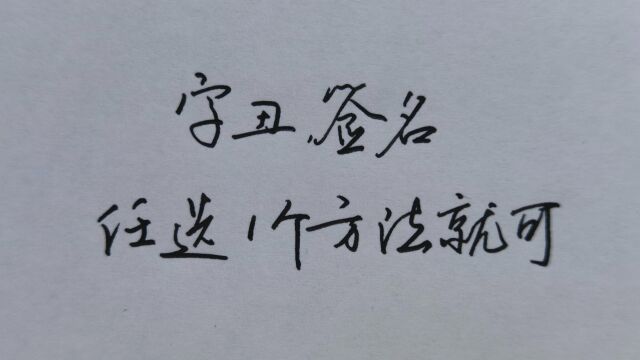 字丑,签名
任选1个方法就可